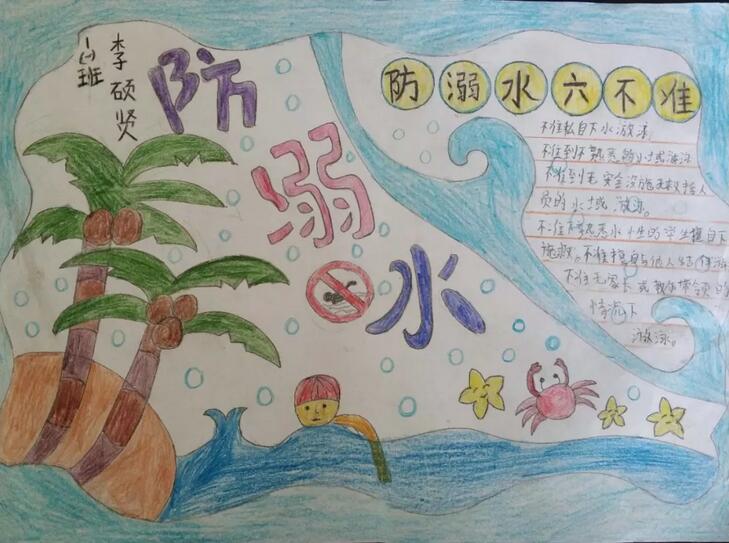 李硕贤
班
防溺水
防溺水六不准
不准私自下水游泳
不准到不熟悉的水域游泳
不准到无安全设施无救援人
员的水域游泳。
不准不熟悉水性的学生擅自下
施救。不准擅自与他人结伴游
不准无家长或教师带领的
情况下
游泳。